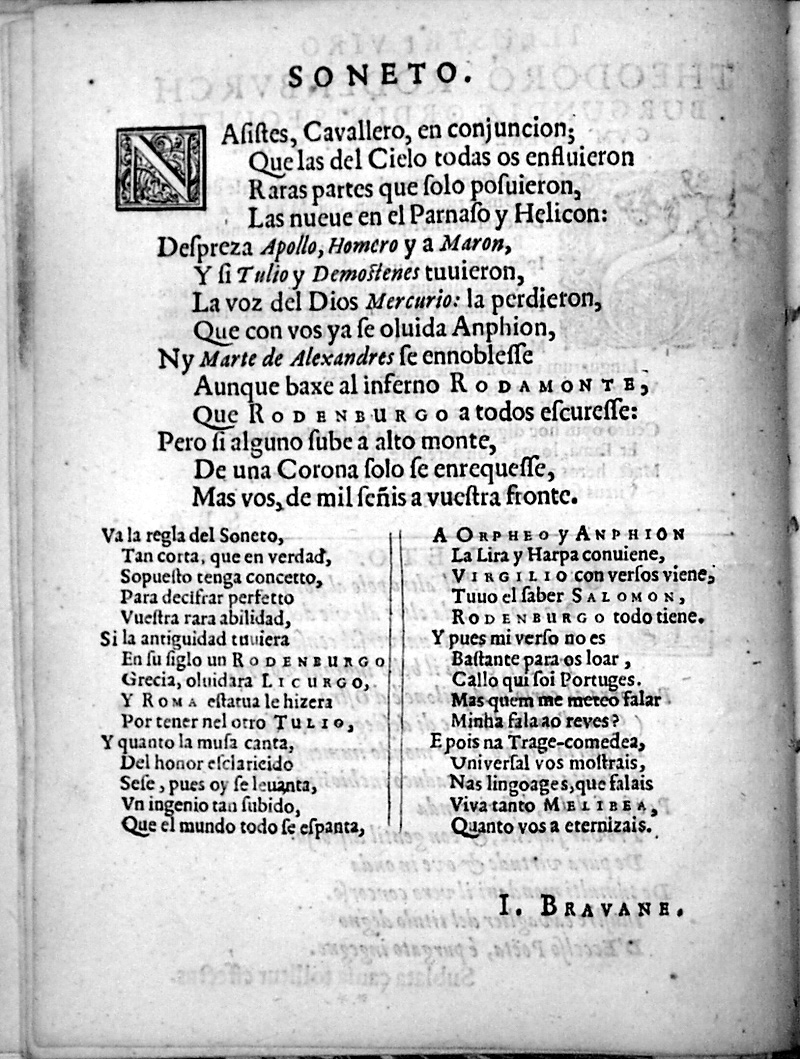 SONETO.
NAſiſtes, Cavallero, en conjuncion;
Que las del Cielo todas os enfluieron
Raras partes que ſolo poſuieron,
Las nueue en el Parnaſo y Helicon:
Deſpreza Apollo, Homero y a Maron,
Y ſi Tulio y Demoſtenes tuuieron,
La voz del Dios Mercurio: la perdieron,
Que con vos ya ſe oluida Anphion,
Ny Marte de Alexandres ſe ennobleſſe
Aunque baxe al inferno RODAMONTE,
Que RODENBURGO a todos eſcureſſe:
Pero ſi alguno ſube a alto monte,
De una Corona ſolo ſe enrequeſſe,
Mas vos, de mil ſeñis a vueſtra fronte.
Va la regla del Soneto,
Tan corta, que en verdad,
Sopueſto tenga concetto,
Para decifrar perfetto
Vueſtra rara abilidad,
Si la antiguidad tuuiera
En ſu ſiglo un RODENBURGO
Grecia, oluidara LICURGO,
Y ROMA eſtatua le hizera
Por tener nel otro TULIO,
Y quanto la muſa canta,
Del honor eſclariçido
Seſe, pues oy ſe leuanta,
Vn ingenio tan ſubido,
Que el mundo todo ſe eſpanta,
A ORPHEO y ANPHION
La Lira y Harpa conuiene,
VIRGILIO con verſos viene,
Tuuo el ſaber SALOMON,
RODENBURGO todo tiene.
Y pues mi verſo no es
Baſtante para os loar,
Callo qui ſoi Portuges.
Mas quem me meteo falar
Minha fala ao reves?
E pois na Trage-comedea,
Univerſal vos moſtrais,
Nas lingoages, que falais
Viva tanto MELIBEA,
Quanto vos a eternizais.
I. BRAVANE.